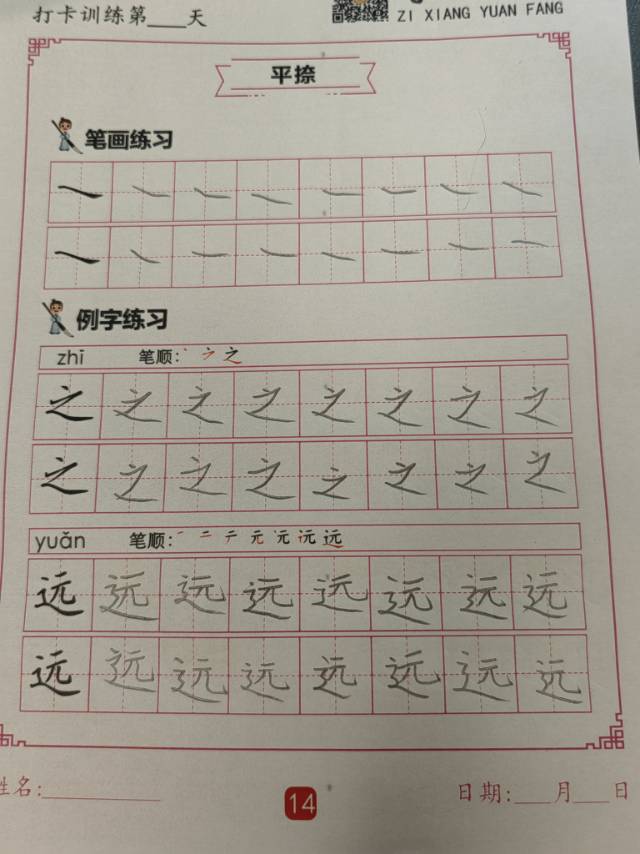 打卡训练第___天
ZI XIANG YUAN FANG
平捺
笔画练习
例字练习
zhī 笔顺: 丶 ㇇ 之
之 之 之 之 之 之 之 之
之 之 之 之 之 之 之 之
yuǎn 笔顺: 一 二 テ 元 元 远 远
远 远 远 远 远 远 远 远
远 远 远 远 远 远 远 远
姓名:
14
日期:___月___日